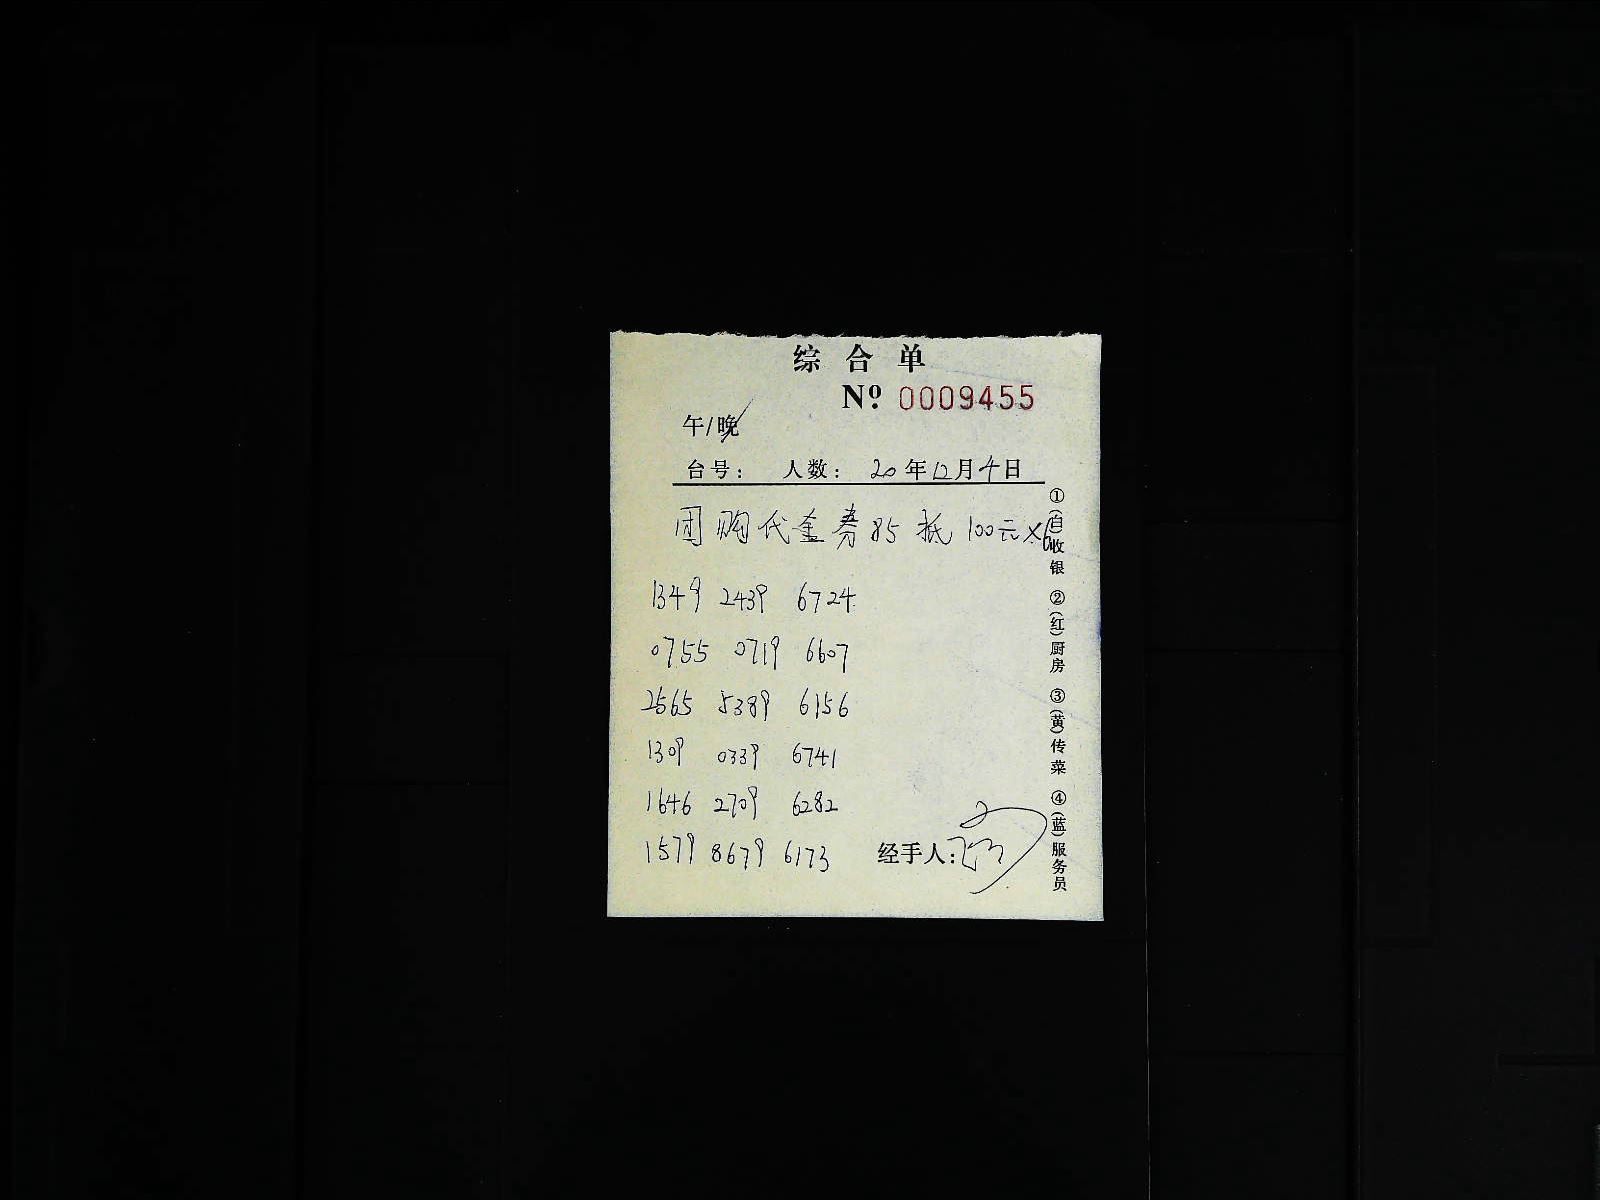 综合单
Nº 0009455
午/晚
台号: 人数: 20年12月4日
团购代金券85抵100元×6
1349 2439 6724
0755 0719 6607
2565 5389 6156
1309 0339 6741
1646 2709 6282
1579 8679 6173
经手人:
①(白)收银 ②(红)厨房 ③(黄)传菜 ④(蓝)服务员